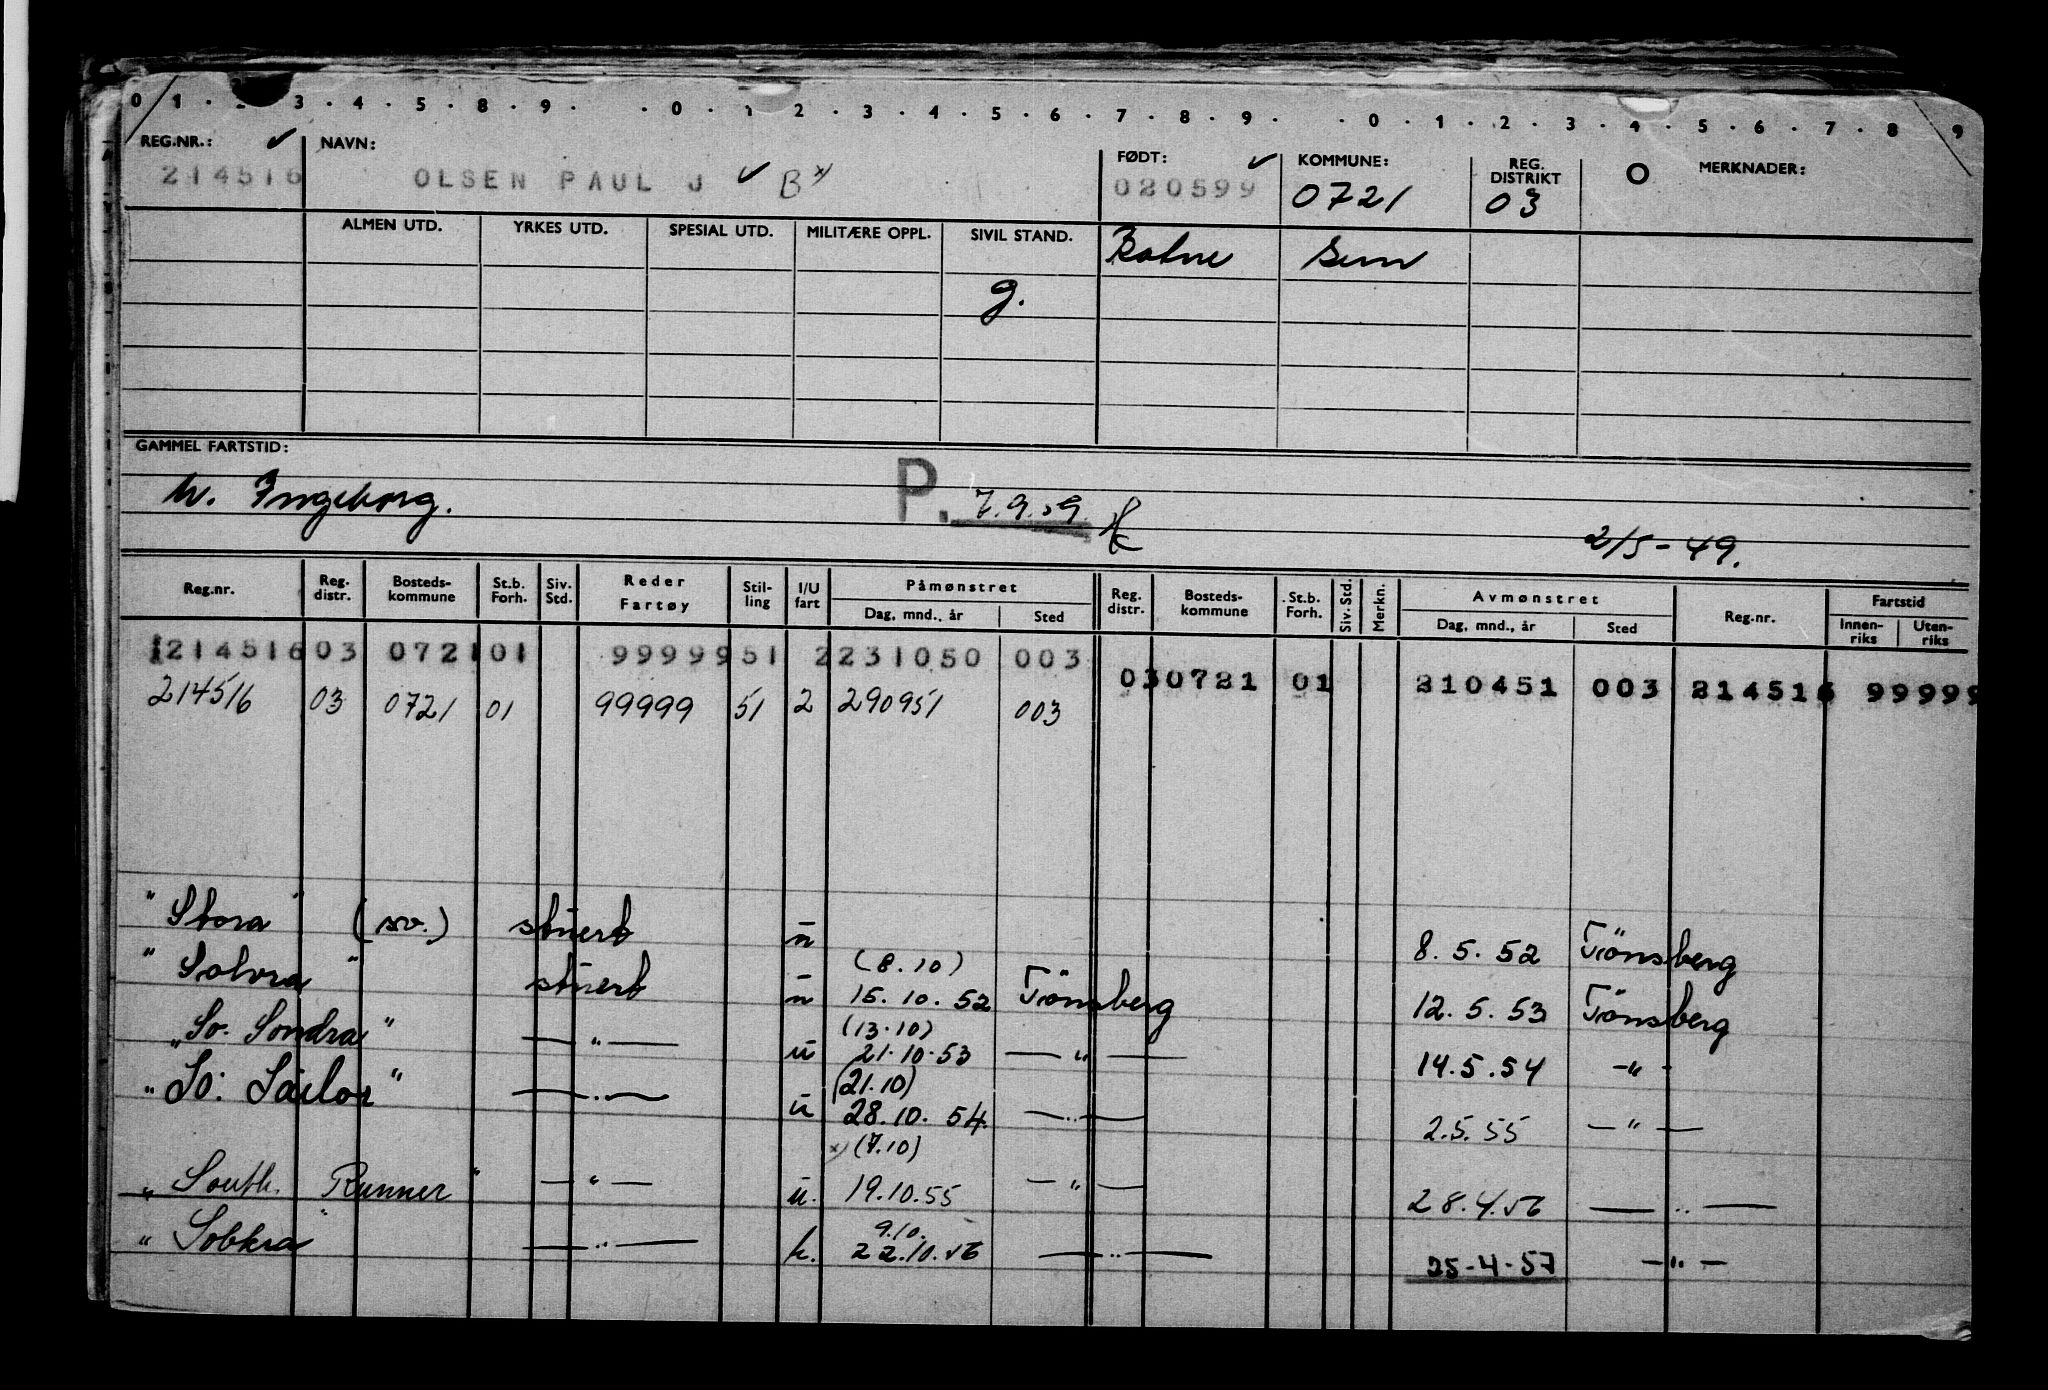 0 1 . 2 . 3 . 4 . 5 . 8 . 9 . . 0 . 1 . 2 . 3 . 4 . 5 . 6 . 7 . 8 . 9 . . 0 . 1 . 2 . 3 . 4 . 5 . 6 . 7 . 8 . 9
REG.NR.: ✓ NAVN: FØDT: ✓ KOMMUNE: REG. DISTRIKT O MERKNADER:
214516 OLSEN PAUL J ✓ B x) 020599 0721 03
ALMEN UTD. YRKES UTD. SPESIAL UTD. MILITÆRE OPPL. SIVIL STAND. Sem
g.
GAMMEL FARTSTID:
W. Ingeborg. P. 7.9.59.
2/5-49.
Reg.nr. Reg. distr. Bosteds-kommune St.b. Forh. Siv. Std. Reder Fartøy Stil-ling I/U fart Påmønstret Reg. distr. Bosteds-kommune St.b. Forh. Siv. Std. Merkn. Avmønstret Reg.nr. Fartstid
Dag, mnd., år Sted Dag, mnd., år Sted Innen-riks Uten-riks
1214516 03 0721 01 99999 51 2 231050 003 03 0721 01 210451 003 214516 99999
214516 03 0721 01 99999 51 2 290951 003
"Stora" (sv.) stuert u 8.5.52 Tönsberg
(8.10)
"Solvra" stuert u 15.10.52 Tönsberg 12.5.53 Tönsberg
(13.10)
"So. Sondra" — " — u 21.10.53 — " — 14.5.54 — " —
(21.10)
"So. Sailor" — " — u 28.10.54. — " — 2.5.55 — " —
x) (7.10)
"South. Runner" — " — u. 19.10.55 — " — 28.4.56 — " —
9.10.
"Sobkra" — " — k. 22.10.56 — " — 25-4-57 — " —